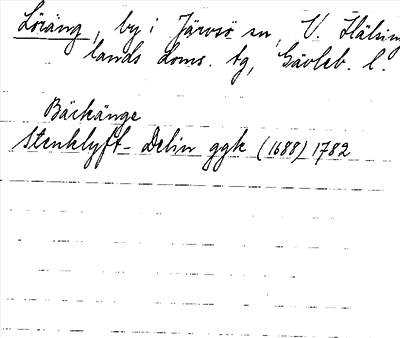 Löräng, by i Järvsö sn, V. Hälsing
lands doms. tg, Gävleb. l.
Bäckänge
Stenklyft - Delin ggk (1688) 1782